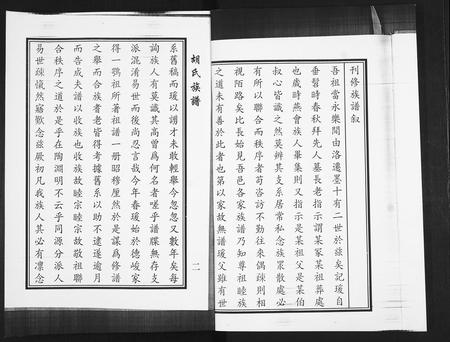 刊修族譜叙
吾祖當永樂間由洛遷墨十有二世於茲矣記瑗自
垂髫時春秋拜先人墓長老指示謂某冢某祖葬處
也歲時燕會族人畢集則又指示是某祖父是某伯
叔心皆識之然莫辨其支系居常私念族眾散處必
有所以聯合而秩序者苟咨訪不勤往來偶踈則相
視陌路矣比長始見吾邑各家族譜乃知尊祖睦族
之道未有善於此者也第以家故無譜瑗父雖有世
胡氏族譜
二
系舊稿而瑗以謭才未敢輕舉今忽忽又數年矣每
詢族人有莫識其高曾為何名者嗟乎譜牒無存支
派混淆易世而後尚忍言哉今年春瑗始於德峻家
得一鶚祖所著祖譜一册昭穆厘然於是謀為修譜
之舉而合族耆老皆得考據舊系以助不逮遂逾月
而告成夫譜以收族也收族故睦宗睦宗故敬祖聯
合秩序之道於是乎在陶淵明不云乎同源分派人
易世疎慨然寤歎念茲厥初凡我族人其必有凛念